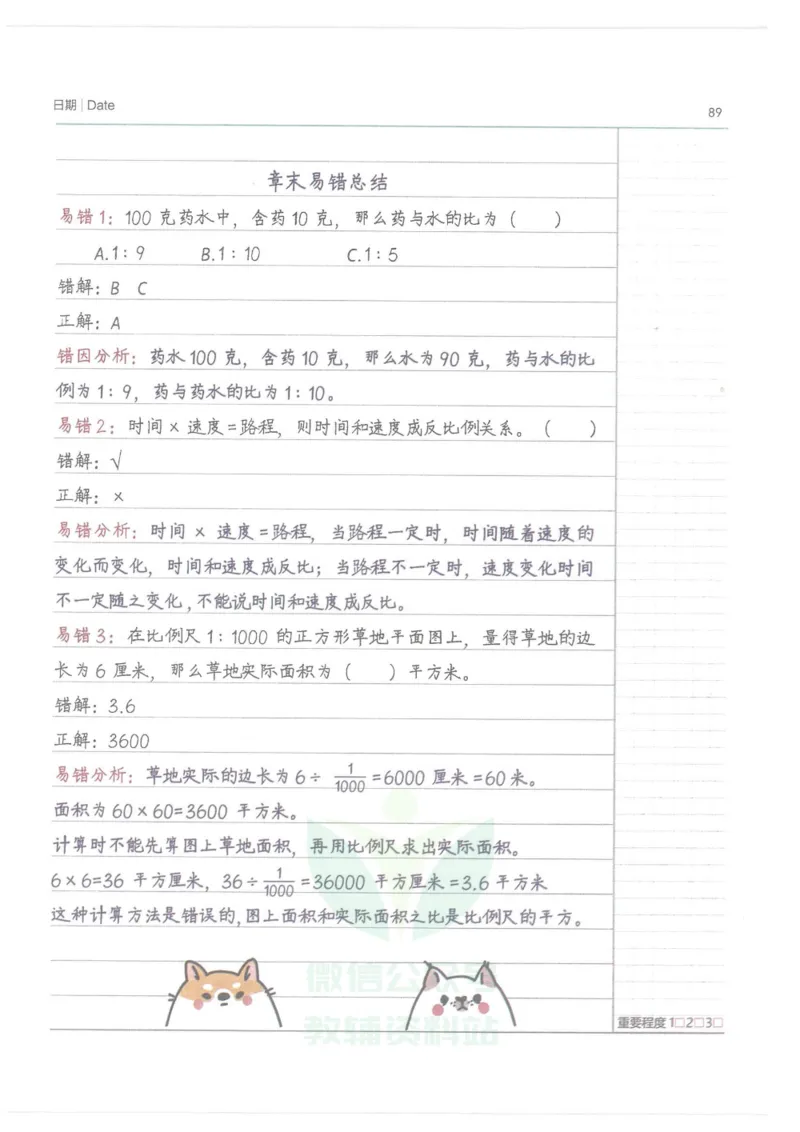 日期 | Date
89
章末易错总结
易错1：100克药水中，含药10克，那么药与水的比为（　　）
A.1：9　　B.1：10　　C.1：5
错解：B　C
正解：A
错因分析：药水100克，含药10克，那么水为90克，药与水的比
例为1：9，药与药水的比为1：10。
易错2：时间×速度=路程，则时间和速度成反比例关系。（　　）
错解：√
正解：×
易错分析：时间×速度=路程，当路程一定时，时间随着速度的
变化而变化，时间和速度成反比；当路程不一定时，速度变化时间
不一定随之变化，不能说时间和速度成反比。
易错3：在比例尺1：1000的正方形草地平面图上，量得草地的边
长为6厘米，那么草地实际面积为（　　）平方米。
错解：3.6
正解：3600
易错分析：草地实际的边长为6÷1/1000=6000厘米=60米。
面积为60×60=3600平方米。
计算时不能先算图上草地面积，再用比例尺求出实际面积。
6×6=36平方厘米，36÷1/1000=36000平方厘米=3.6平方米
这种计算方法是错误的，图上面积和实际面积之比是比例尺的平方。
微信公众号
教辅资料站
重要程度 1□2□3□